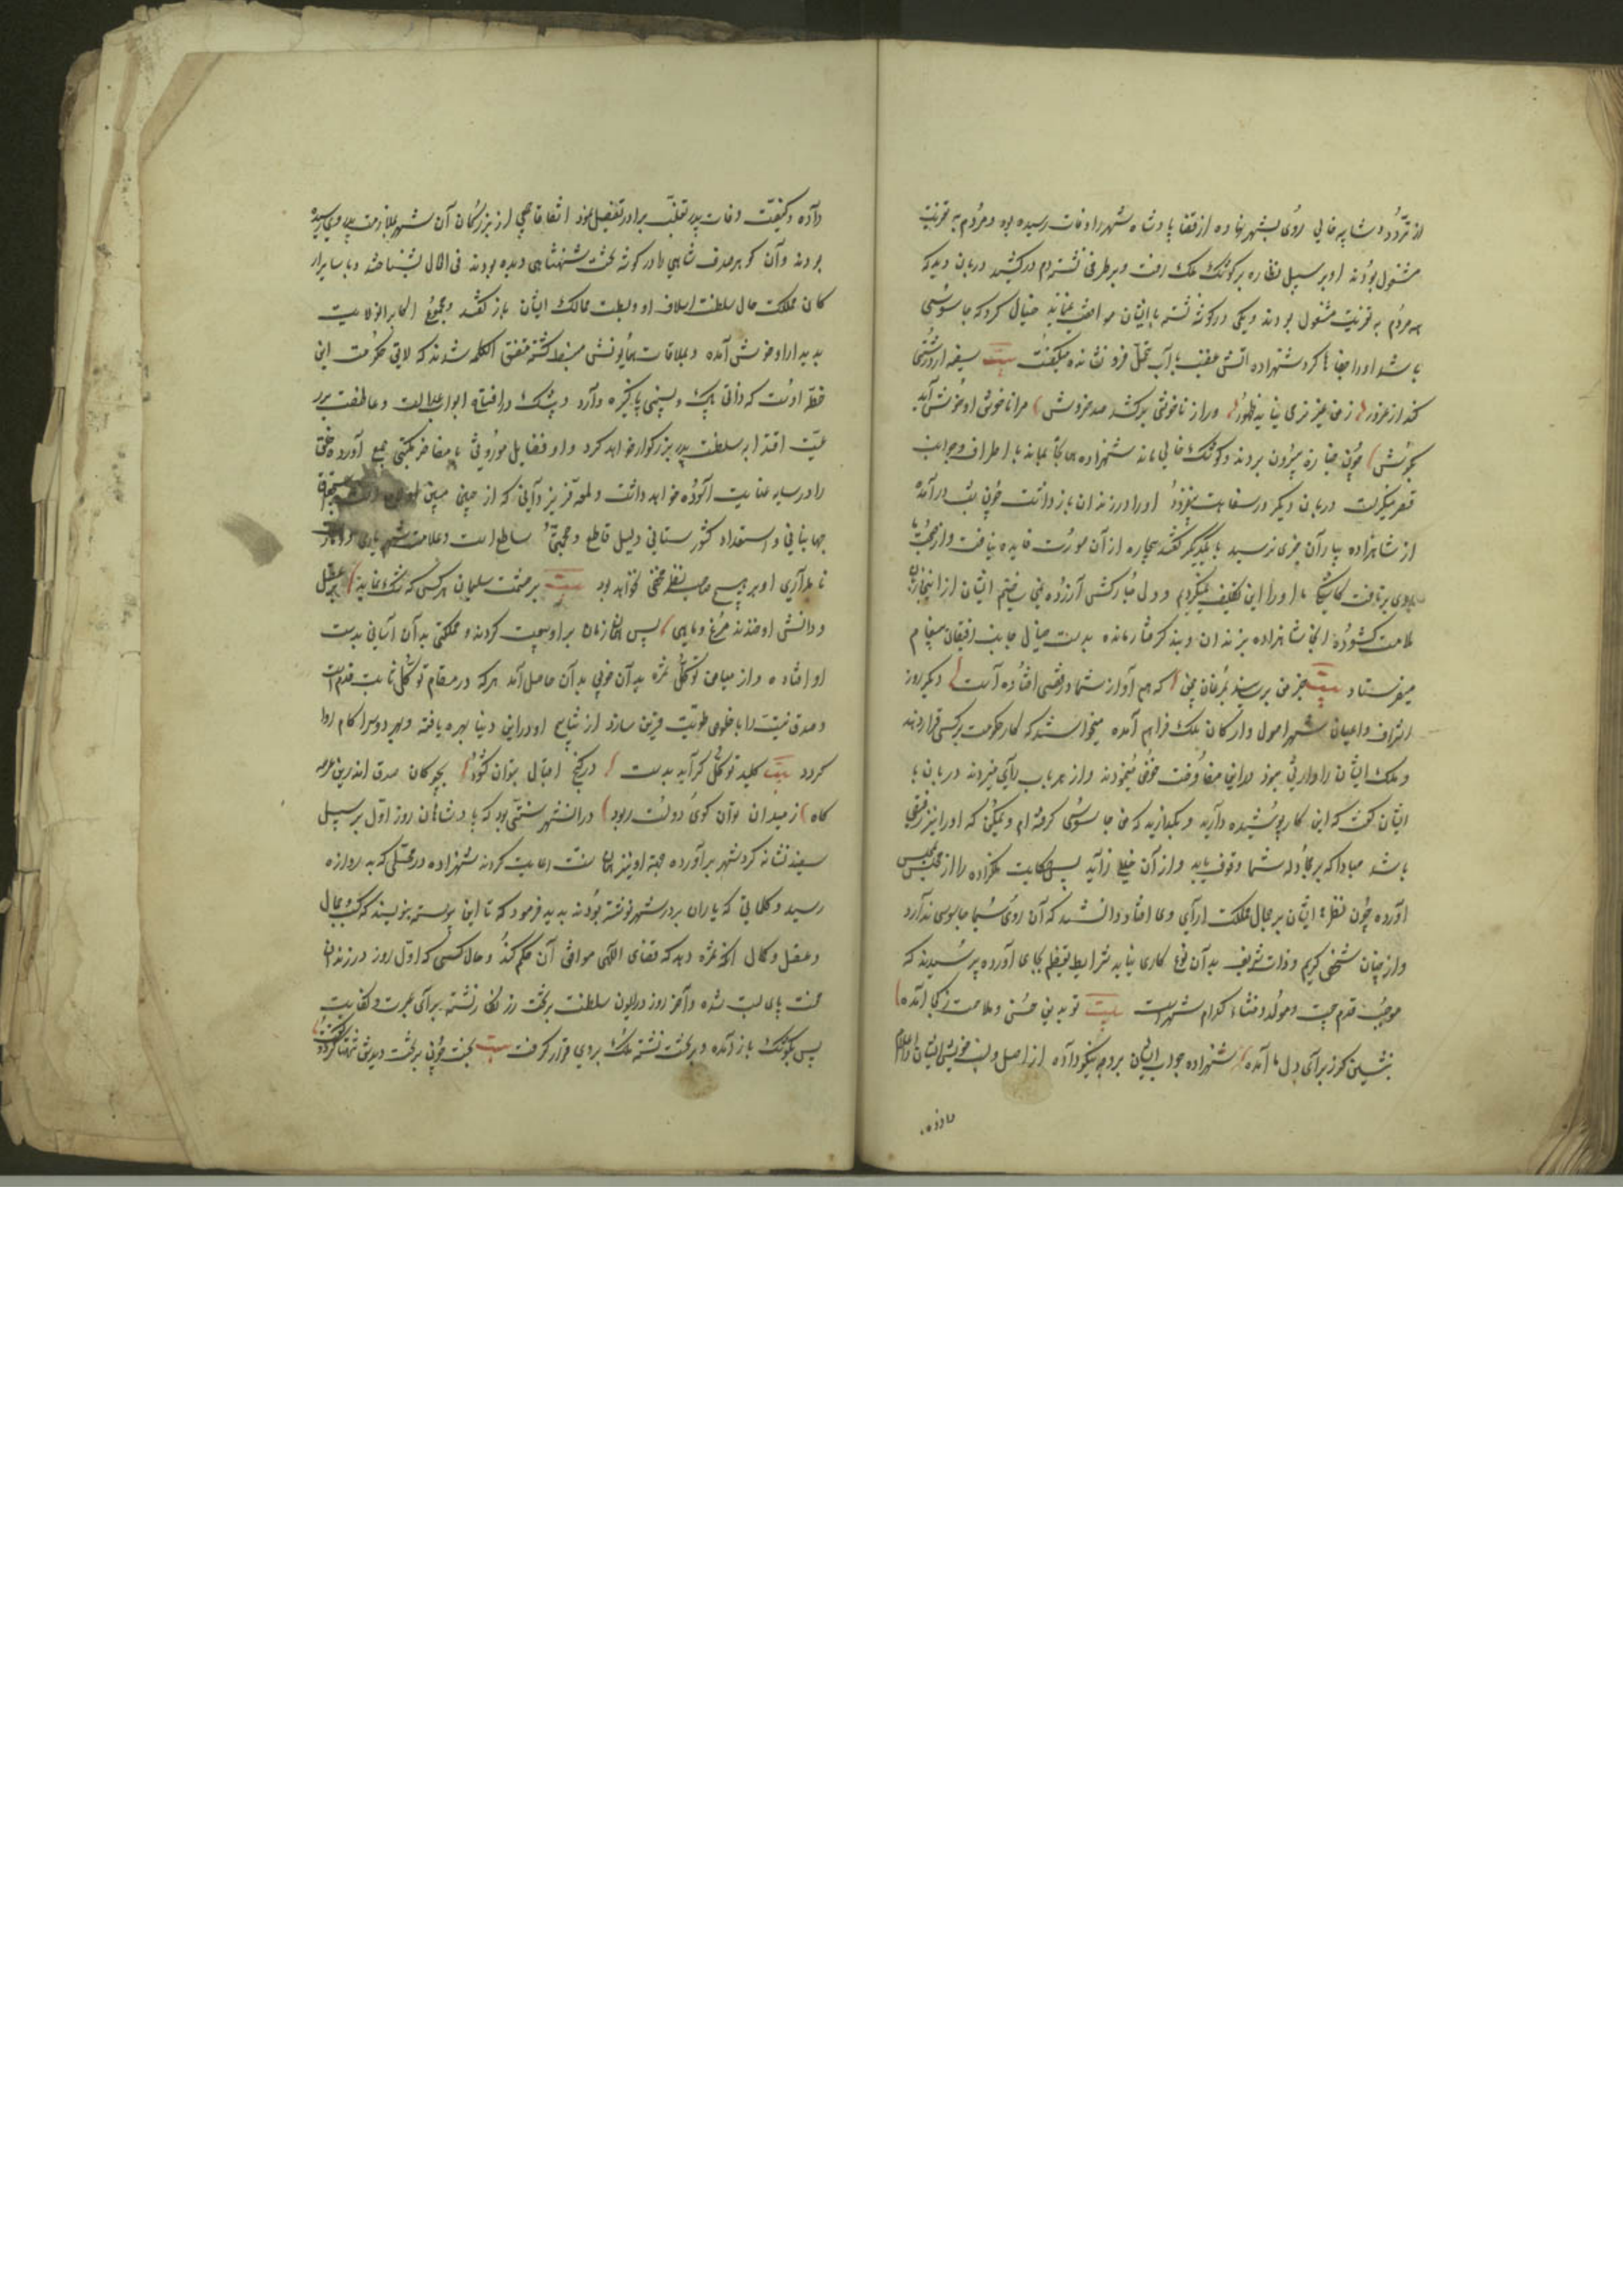 از تردد و شایبه خالی روی بشهر نهاده از قضا پادشاه شهر را وفات رسیده بود و مردم به تعزیت
مشغول بودند او بر سبیل نظاره بر کوشک ملک رفت و بر طرفی نشسته دم درکشید دربان دید که
همه مردم به تعزیت مشغول بودند و یکی در گوشه نشسته با ایشان موافقت نمی‌نماید خیال کرد که جاسوسی
باشد او را جفاها کرد شهزاده آتش غضب بآب تحمل فرو نشانده میگفت بیت سفیه ار درشتی
کند از غرور ز من غیر نرمی نیاید ظهور و راز ناخوشی برکشد صد خروش مرا ناخوش او خوش آید
بگوش چون جنازه بیرون بردند و کوشک خالی ماند شهزاده همانجا بماند باطراف و جوانب
قصر مینگریست دربان دیگر در سفاهت بیفزود او را در زندان بازداشت چون شب درآمد
از شاهزاده بیاران خبری نرسید با یکدیگر گفتند بیچاره از آن صورت فایده نیافت و از صحبت ما
روی برتافت کاشکی ما او را این تکلیف نمیکردیم و دل مبارکش آزرده نمی‌ساختیم ایشان از اینجا زبان
ملامت گشوده آنجا شاهزاده بزندان و بند گرفتار مانده بدست خیال بجانب رفیقان پیغام
میفرستاد بیت خبر من برسانید بمرغان چمن که هم آواز شما در قفسی افتاده است دیگر روز
اشراف و اعیان شهر اصول و ارکان ملک فراهم آمده میخواستند که کار حکومت بر کسی قرار دهند
و ملک ایشان را وارثی نبود در این مفاوضت خوض مینمودند و از هر باب رای میزدند دربان با
ایشان گفت که این کار پوشیده دارید و بگذارید که من جاسوسی گرفته‌ام و ممکن که او را نیز رفیقی
باشد مبادا که بر مجادله شما وقوف یابد و از آن خللی زاید پس حکایت ملکزاده را از مجلس
آورده چون نظر ایشان بر جمال مملکت آرای وی افتاد دانستند که آن روی سیما جاسوسی ندارد
و از چنان شخص کریم و ذات شریف بدان نوع کاری نیاید شرایط تعظیم بجای آورده پرسیدند که
موجب قدم چیست و مولد و منشاء کدام شهر است بیت تو بدین حسن و ملاحت ز کجا آمده
بنشین کز برای دل ما آمده شهزاده جواب ایشان بر وجه نیکو داده از اصل و نسب خویش ایشان را اعلام
داده
داده و کیفیت وفات پدر و تغلب برادر بتفصیل نمود اتفاقا جمعی از بزرگان آن شهر بملازمت پدر وی رسیده
بودند و آن گوهر صدف شاهی را در گوشه تخت شهنشاهی دیده بودند فی الحال بشناختند و با سایر ار
کان مملکت حال سلطنت اسلاف او و بسطت ممالک ایشان باز گفتند و مجموع اکابر الولایت
بدیدار او خوش آمده و بملاقات همایونش منبسط گشته متفق الکلمه شدند که لایق حکومت این
خطه اوست که ذاتی پاک و نسبتی پاکیزه دارد و بیشک در افتتاح ابواب عدالت و عاطفت بر ر
عیت اقتدا به سلطنت پدر بزرگوار خواهد کرد و او فضایل موروثی با مفاخر مکتسبی جمع آورده خلق
را در سایه عنایت آسوده خواهد داشت و لمعه فر یزدانی که از جبین مبین
جهانبانی و استعداد کشورستانی دلیل قاطع و حجتی ساطع است و علامت شهریاری و آثار
نامداری او بر هیچ صاحب نظر مخفی نخواهد بود بیت بر حشمت سلیمان هر کس که شک نماید بر عقل
و دانش او خندند مرغ و ماهی پس همان زمان بر او بیعت کردند و مملکتی بدان آسانی بدست
او افتاده و از میامن توکل ثمره بدان خوبی بدان حاصل آمد هر که در مقام توکل ثابت قدم است
و صدق نیت را با خلوص طویت قرین سازد از نتایج او در این دنیا بهره یافته و بهر دو سرا کام روا
گردد بیت کلید توکل گر آید بدست در گنج اقبال بتوان گشود بچوگان صدق اندرین عرصه
گاه ز میدان توان گوی دولت ربود در آن شهر سنتی بود که پادشاهان روز اول بر سپیل
سفید نشانه گرد شهر برآورده جهة او نیز همان سنت رعایت کردند شهزاده در محلی که به دروازه
رسید و کلماتی که یاران بر در شهر نوشته بودند بدید فرمود که تا این پیوسته بنویسند که کسب و جمال
و عقل و کمال آنگه ثمره دهد که قضای الهی موافق آن حکم کند و حال کسی که اول روز در زندان
محنت پای بست شده و آخر روز در ایوان سلطنت بر تخت زرنگار نشسته برای عبرت کفایت
پس بکوشک باز آمده و بر تخت نشسته ملک بر وی قرار گرفت بیت بخت چون بر تخت دیدش تهنیتها کرد و گفت